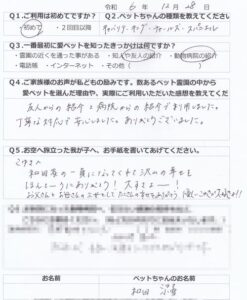 令和 6年 12月 28日
Q1.ご利用は初めてですか?
Q2.ペットちゃんの種類を教えてください
初めて ・ 2回目以降
キャバリア・キング・チャールズ・スパニエル
Q3.一番最初に愛ペットを知ったきっかけは何ですか?
・霊園の近くを通った事がある ・知人や友人の紹介 ・動物病院の紹介
・電話帳 ・インターネット ・その他(
Q4.ご家族様のお声が私どもの励みです。数あるペット霊園の中から
愛ペットを選んだ理由や、実際にご利用いただいた感想を教えてください
友人からの紹介と病院からの紹介で利用しました。
ありがとうございました。
Q5.お空へ旅立った我が子へ、お手紙を書いてあげてください。
和田家の一員になってくれて沢山の幸せを
ほんとーにありがとう!大すきよー!
お父さんとお母さんの
お名前
ペットちゃんのお名前
和田